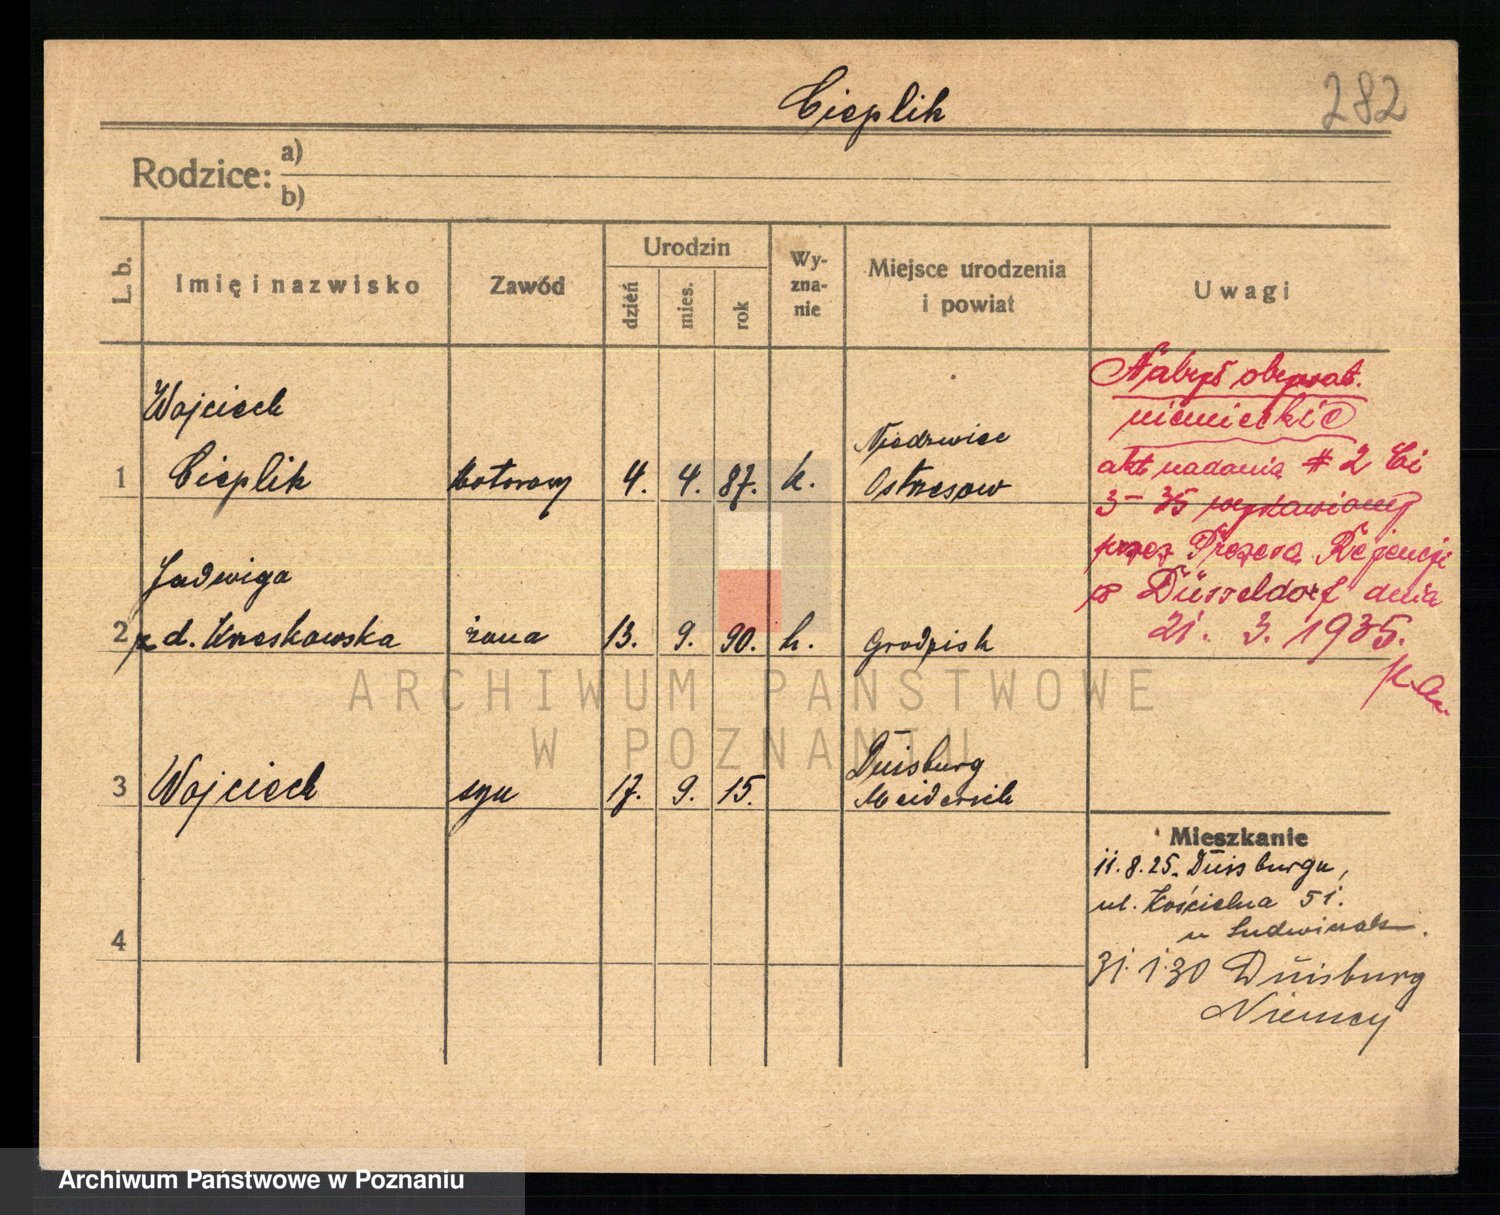 Cieplik
282
Rodzice:
a)
b)
L. b.
Imię i nazwisko
Zawód
Urodzin
dzień
mies.
rok
Wy-
zna-
nie
Miejsce urodzenia
i powiat
Uwagi
Wojciech
1 Cieplik Motorowy 4. 4. 87. k. Niedzwice
Ostrzesow
Jadwiga
2 z d. Kneskowska żona 13. 9. 90. k. Grodzisk
3 Wojciech syn 17. 9. 15. Duisburg
Meiderich
4
Nabył obywat.
niemieckie
akt nadania # 2 Ci
3-35 wystawiony
przez Prezesa Rejencji
w Düsseldorf dnia
21. 3. 1935.
Mieszkanie
11.8.25. Duisburgu,
ul. Kościelna 51.
u Ludwiczak.
31.1.30 Duisburg
Niemcy
ARCHIWUM PAŃSTWOWE
W POZNANIU
Archiwum Państwowe w Poznaniu